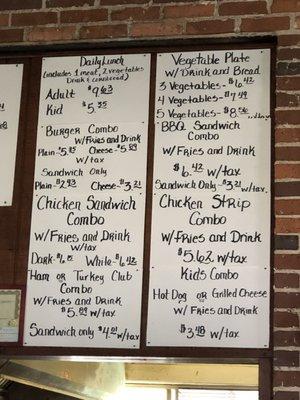 Daily Lunch
(includes 1 meat, 2 vegetables
Drink & cornbread)
Adult $9.63
Kid $5.35
Burger Combo
w/Fries and Drink
Plain- $5.15 Cheese- $5.89
w/tax
Sandwich Only
Plain- $2.93 Cheese- $3.21
Chicken Sandwich
Combo
w/Fries and Drink
Dark- White- $6.42
Ham or Turkey Club
Combo
w/Fries and Drink
$5.89 w/tax
Sandwich only $4.01 w/tax
Vegetable Plate
w/Drink and Bread
3 Vegetables- $6.42
4 Vegetables- $7.49
5 Vegetables- $8.56
BBQ Sandwich
Combo
w/Fries and Drink
$6.42 w/tax
Sandwich Only - $3.21 w/tax
Chicken Strip
Combo
w/Fries and Drink
$5.62 w/tax
Kids Combo
Hot Dog or Grilled Cheese
w/Fries and Drink
$3.48 w/tax